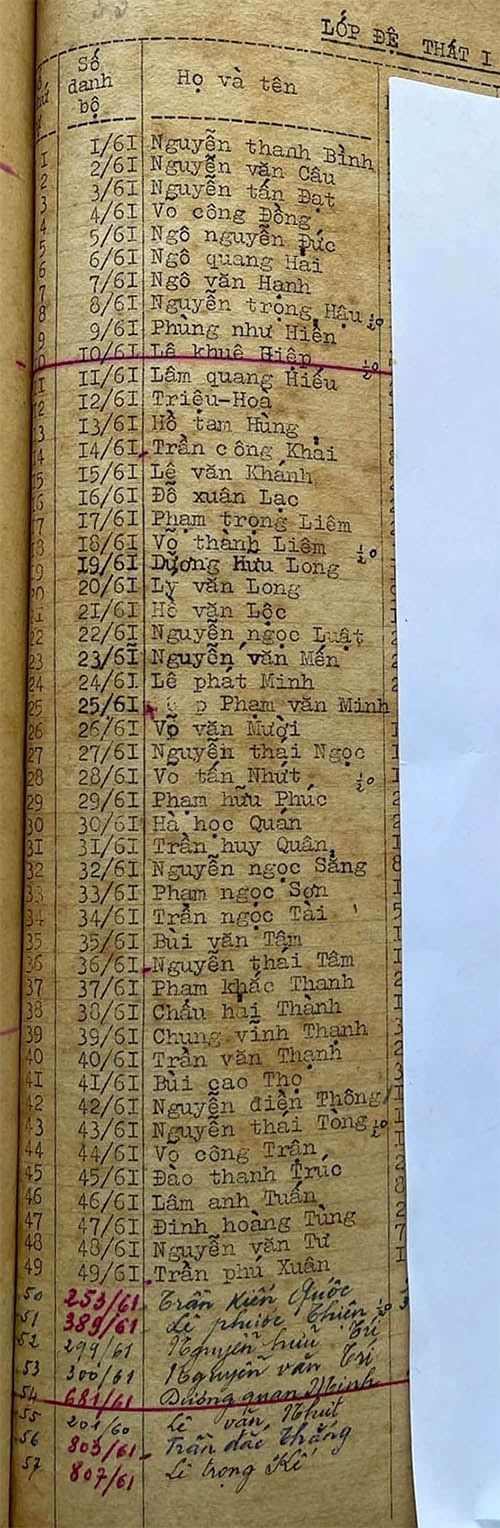 LỚP ĐỆ THẤT I
Số danh bộ Họ và tên
1 1/61 Nguyễn thanh Bình
2 2/61 Nguyễn văn Câu
3 3/61 Nguyễn tấn Đạt
4 4/61 Võ công Đồng
5 5/61 Ngô nguyễn Đức
6 6/61 Ngô quang Hải
7 7/61 Ngô văn Hạnh
8 8/61 Nguyễn trọng Hậu
9 9/61 Phùng như Hiển
10 10/61 Lê khuê Hiệp
11 11/61 Lâm quang Hiếu
12 12/61 Triệu-Hoà
13 13/61 Hồ tam Hùng
14 14/61 Trần công Khải
15 15/61 Lê văn Khánh
16 16/61 Đỗ xuân Lạc
17 17/61 Phạm trọng Liêm
18 18/61 Võ thành Liêm
19 19/61 Dương Hưu Long
20 20/61 Lý văn Long
21 21/61 Hồ văn Lộc
22 22/61 Nguyễn ngọc Luật
23 23/61 Nguyễn văn Mến
24 24/61 Lê phát Minh
25 25/61 Phạm văn Minh
26 26/61 Võ văn Mười
27 27/61 Nguyễn thái Ngọc
28 28/61 Võ tấn Nhứt
29 29/61 Phạm hữu Phúc
30 30/61 Hà học Quán
31 31/61 Trần huy Quân
32 32/61 Nguyễn ngọc Sằng
33 33/61 Phạm ngọc Sơn
34 34/61 Trần ngọc Tài
35 35/61 Bùi văn Tâm
36 36/61 Nguyễn thái Tâm
37 37/61 Phạm khắc Thanh
38 38/61 Châu hải Thành
39 39/61 Chung vĩnh Thạnh
40 40/61 Trần văn Thạnh
41 41/61 Bùi cao Thọ
42 42/61 Nguyễn điền Thông
43 43/61 Nguyễn thái Tòng
44 44/61 Võ công Trận
45 45/61 Đào thanh Trúc
46 46/61 Lâm anh Tuấn
47 47/61 Đinh hoàng Tùng
48 48/61 Nguyễn văn Tư
49 49/61 Trần phú Xuân
50 253/61 Trần Kiến Quốc
51 389/61 Lê phước Thiên
52 299/61 Nguyễn hữu Trí
53 300/61 Nguyễn văn Trí
54 681/61 Dương quan Minh
55 201/60 Lê văn Nhứt
56 803/61 Trần đắc Thắng
57 807/61 Lê trọng Kế